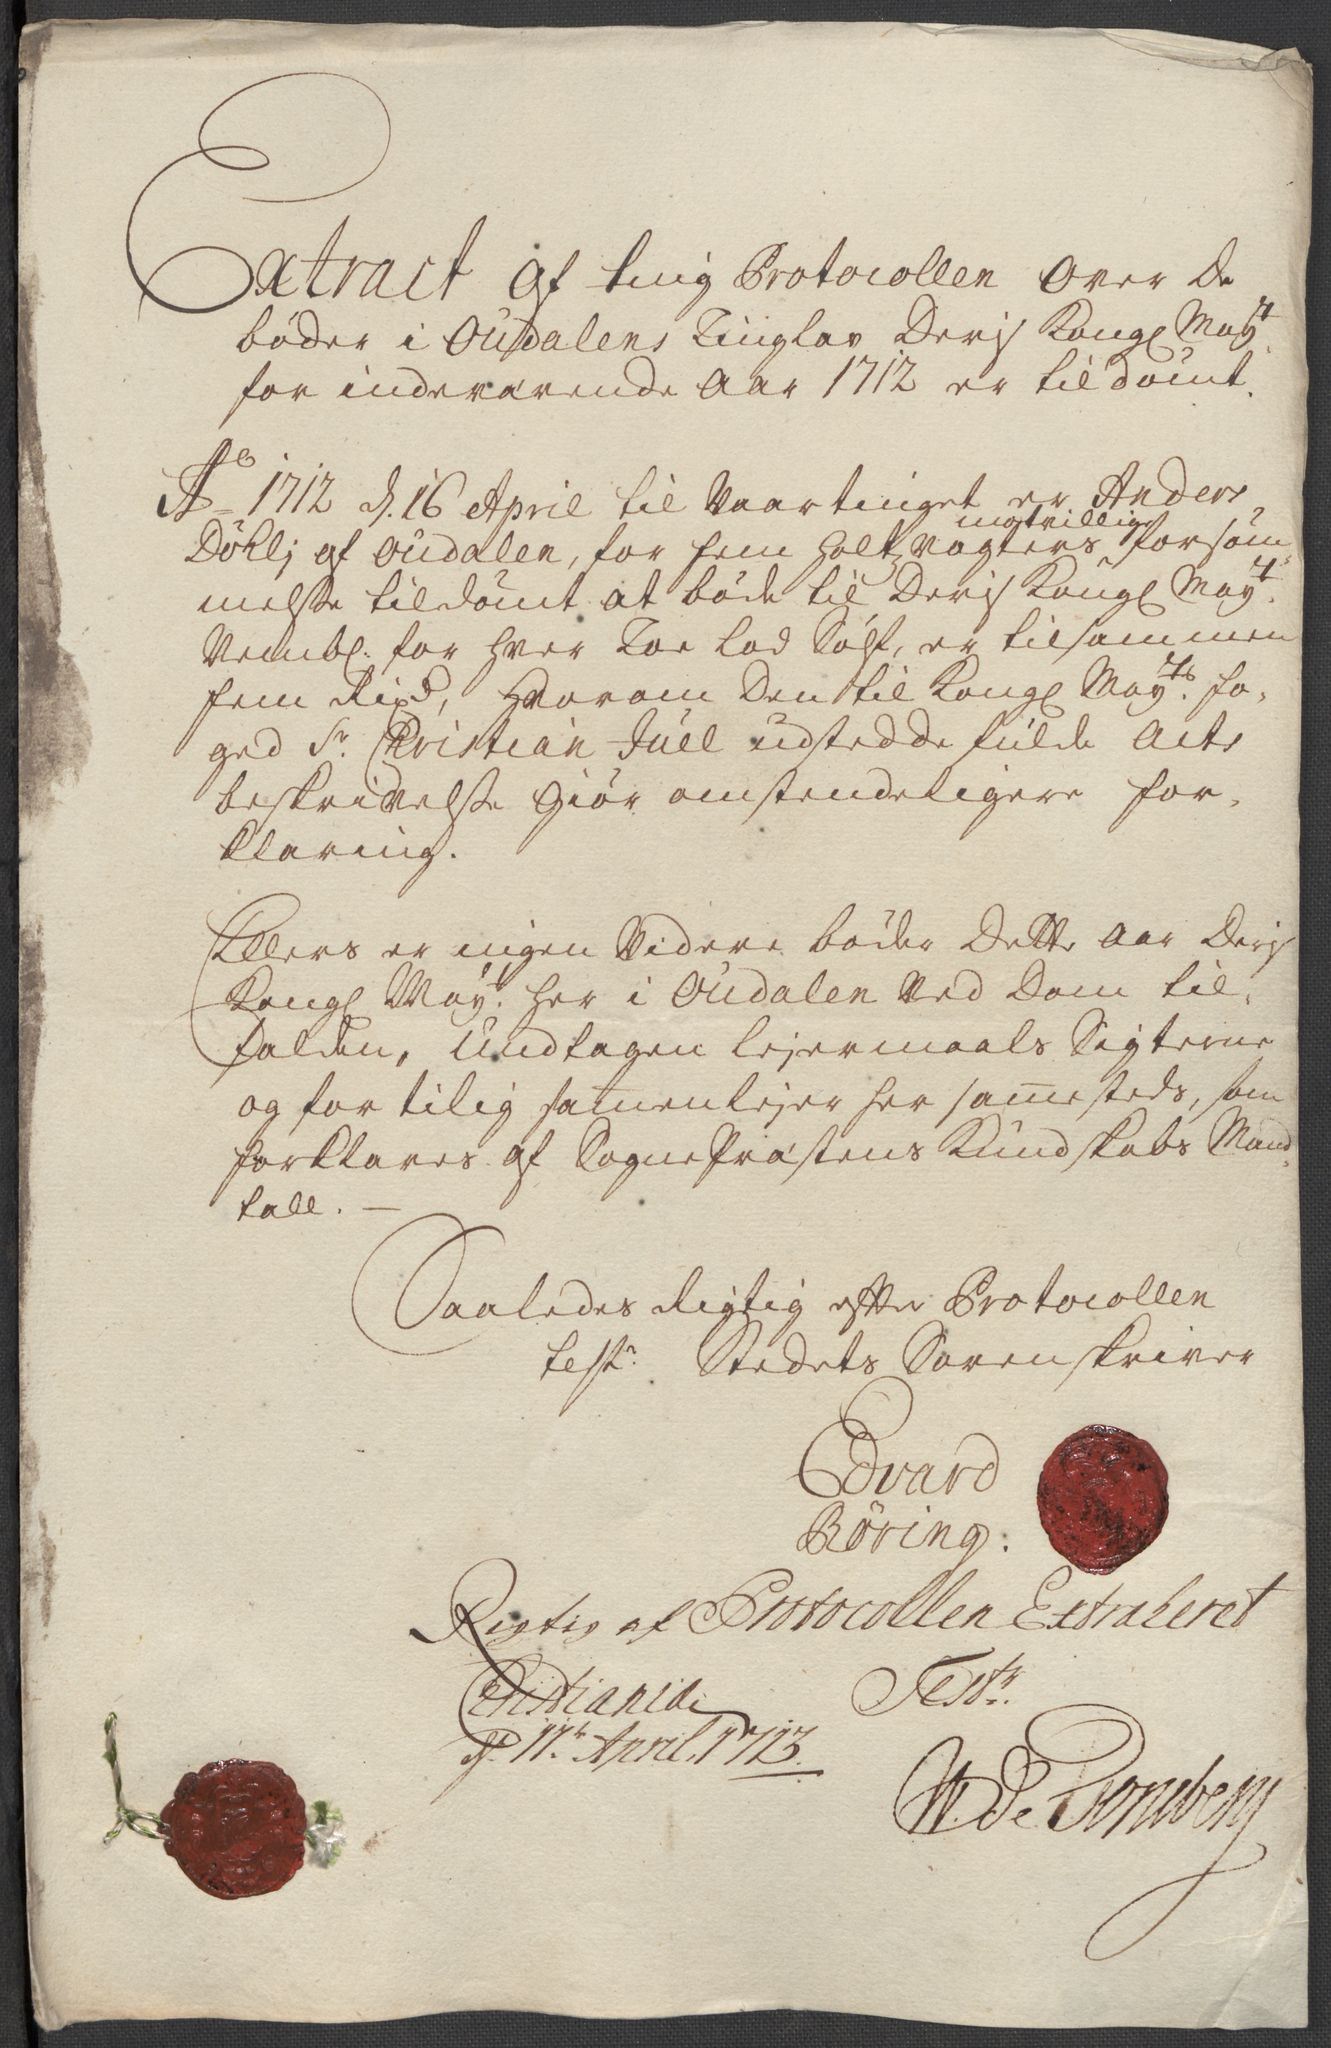 Extract af ting Protocollen over De
bøder i Oudalens Tinglav Deris Kongl May:t
for indeværende Aar 1712 er til dømt.
Ao 1712 d. 16 April til Vaartinget er Anders
Döhli af Oudalen, for fem holt modtvillige
Vagters forsøm-
melse tildømt at bøde til Deris Kongl May:t
for hver Toe Lod Sølf, er tilsammen
fem Rixd, Hvorom Den til Kongl May:ts fo-
ged Sr. Christian Juell udstedde fulde Acts
beskrivelse giør omstendeligere for-
klaring.
Ellers er ingen Videre bøder Dette Aar Deris
Kongl May:t her i Oudalen Ved Dom til-
falden, Undtagen Lejermaals Sigterne
og for tilig sammenlejer her sammesteds, som
forklares af SognePræstens Kundskabs Mand
tall. —
Saaledes Rigtig efter Protocollen
test: Stedets Sorenskriver
Edvard
Röring.
Rigtig af Protocollen Extraheret
Christiania Test:
d. 11t April. 1713.
W. De Tonsberg